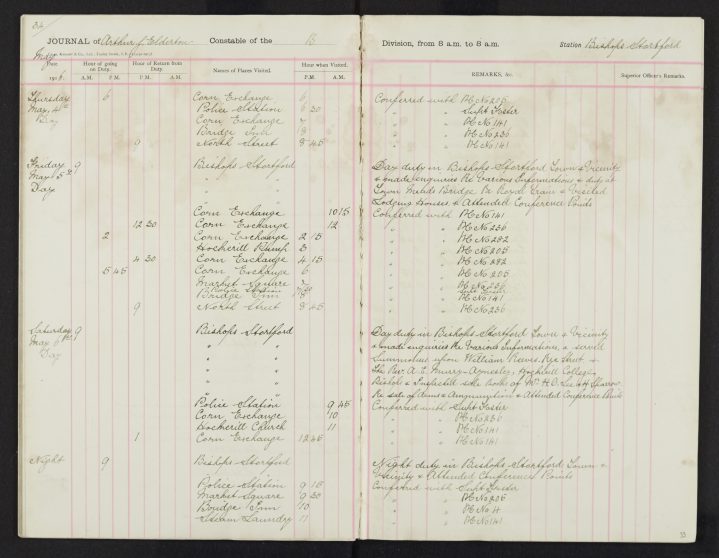 34
JOURNAL of Arthur J. Elderton Constable of the B
May
Date
1916.
Hour of going on Duty.
Hour of Return from Duty.
Names of Places Visited.
Hour when Visited.
A.M. P.M. P.M. A.M. P.M. A.M.
Division, from 8 a.m. to 8 a.m. Station Bishops Stortford
REMARKS, &c. Superior Officer's Remarks.
Thursday 6 Corn Exchange 6 Conferred with PC No 205
May 4th Police Station 6 30 " " Supt Foster
Day Corn Exchange 7 " " PC No 141
Bridge Inn 8 " " PC No 236
9 North Street 8 45 " " PC No 141
Friday 9 Bishops Stortford Day duty in Bishops Stortford Town & Vicinity
May 5th " " & made enquiries Re Various Informations & duty at
Day " " Town Meads Bridge Re Royal Train & Visited
Lodging Houses & Attended Conference Points
Corn Exchange 10 15 Conferred with PC No 141
12 30 Corn Exchange 12 " " PC No 236
2 Corn Exchange 2 15 " " PC No 282
Hockerill Pump 3 " " PC No 205
4 30 Corn Exchange 4 15 " " PC No 282
5 45 Corn Exchange 6 " " PC No 205
Market Square 7 " " PC No 236
Police Station 7 30 Supt Foster
Bridge Inn 8 " " PC No 141
9 North Street 8 45 " " PC No 236
Saturday 9 Bishops Stortford Day duty in Bishops Stortford Town & Vicinity
May 6th " " & made enquiries Re Various Informations, & served
Day " " Summons upon William Reeves, Rye Street &
" " the Rev. A. L. Hockerill College,
" " & books of Mr H. C. Lee & H Sparrow
" " Re sale of Arms & Ammunition & Attended Conference Points
Police Station 9 45 Conferred with Supt Foster
Corn Exchange 10 " " PC No 236
Hockerill Church 11 " " PC No 141
1 Corn Exchange 12 45 " " PC No 141
Night 9 Bishops Stortford Night duty in Bishops Stortford Town &
" Vicinity & Attended Conference Points
Police Station 9 15 Conferred with Supt Foster
Market Square 9 30 " " PC No 205
Bridge Inn 10 " " PC No 4
Steam Laundry 11 " " PC No 141
33